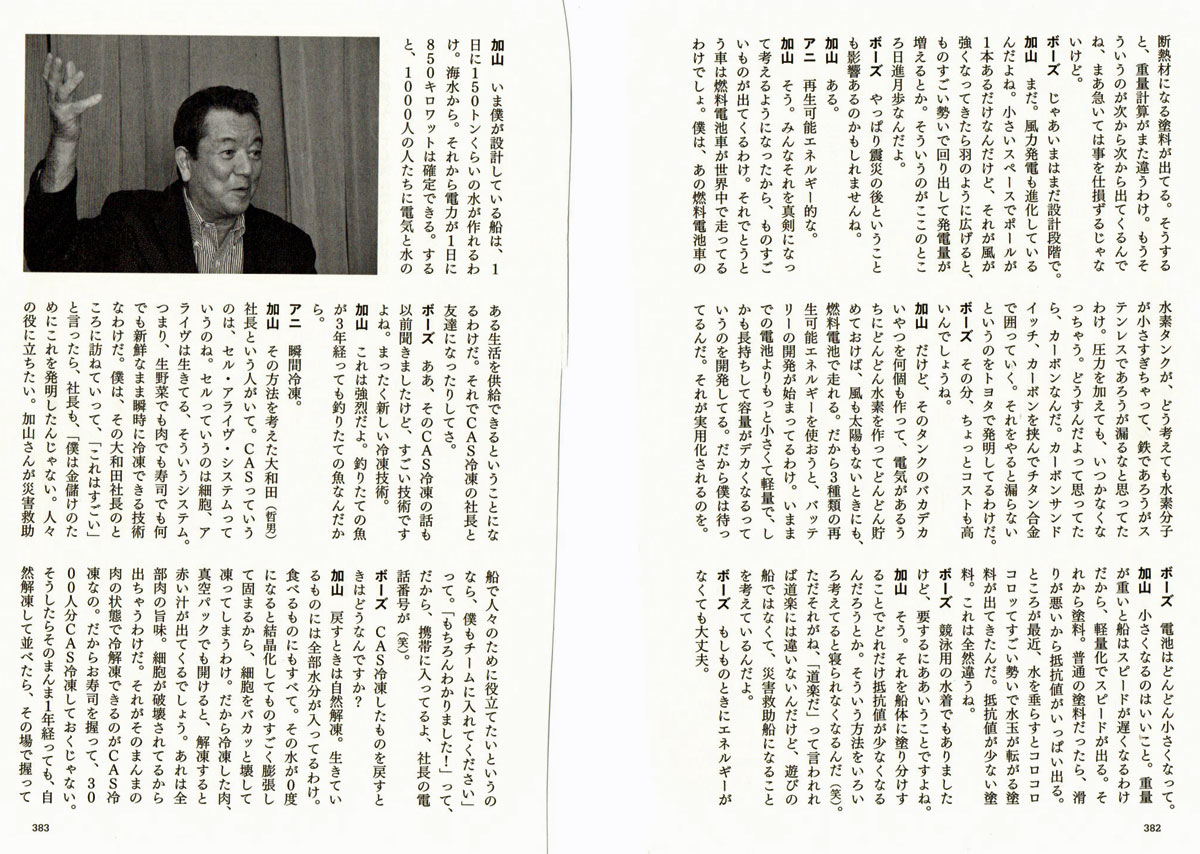 断熱材になる塗料が出てる。そうする
と、重量計算がまた違うわけ。もうそ
ういうのが次から次から出てくるんで
ね、まあ急いては事を仕損ずるじゃな
いけど。
ボーズ　じゃあいまはまだ設計段階で。
加山　まだ。風力発電も進化している
んだよね。小さいスペースでポールが
1本あるだけなんだけど、それが風が
強くなってきたら羽のように広げると、
ものすごい勢いで回り出して発電量が
増えるとか。そういうのがここのとこ
ろ日進月歩なんだよ。
ボーズ　やっぱり震災の後ということ
も影響あるのかもしれませんね。
加山　ある。
アニ　再生可能エネルギー的な。
加山　そう。みんなそれを真剣になっ
て考えるようになったから、ものすご
いものが出てくるわけ。それでとうと
う車は燃料電池車が世界中で走ってる
わけでしょ。僕は、あの燃料電池車の
水素タンクが、どう考えても水素分子
が小さすぎちゃって、鉄であろうがス
テンレスであろうが漏るなと思ってた
わけ。圧力を加えても、いつかなくな
っちゃう。どうすんだよって思ってた
ら、カーボンなんだ。カーボンサンド
イッチ、カーボンを挟んでチタン合金
で囲っていく。それをやると漏らない
というのをトヨタで発明してるわけだ。
ボーズ　その分、ちょっとコストも高
いんでしょうね。
加山　だけど、そのタンクのバカデカ
いやつを何個も作って、電気があるう
ちにどんどん水素を作ってどんどん貯
めておけば、風も太陽もないときにも、
燃料電池で走れる。だから3種類の再
生可能エネルギーを使おうと、バッテ
リーの開発が始まってるわけ。いまま
での電池よりもっと小さくて軽量で、し
かも長持ちして容量がデカくなるって
いうのを開発してる。だから僕は待っ
てるんだ。それが実用化されるのを。
ボーズ　電池はどんどん小さくなって。
加山　小さくなるのはいいこと。重量
が重いと船はスピードが遅くなるわけ
だから、軽量化でスピードが出る。そ
れから塗料。普通の塗料だったら、滑
りが悪いから抵抗値がいっぱい出る。
ところが最近、水を垂らすとコロコロ
コロッてすごい勢いで水玉が転がる塗
料が出てきたんだ。抵抗値が少ない塗
料。これは全然違うね。
ボーズ　競泳用の水着でもありました
けど、要するにああいうことですよね。
加山　そう。それを船体に塗り分けす
ることでどれだけ抵抗値が少なくなる
んだろうとか。そういう方法をいろい
ろ考えてると寝られなくなるんだ（笑）。
ただそれがね、「道楽だ」って言われれ
ば道楽には違いないんだけど、遊びの
船ではなくて、災害救助船になること
を考えているんだよ。
ボーズ　もしものときにエネルギーが
なくても大丈夫。
382
加山　いま僕が設計している船は、1
日に150トンくらいの水が作れるわ
け。海水から。それから電力が1日に
850キロワットは確定できる。する
と、1000人の人たちに電気と水の
ある生活を供給できるということにな
るわけだ。それでCAS冷凍の社長と
友達になったりしてさ。
ボーズ　ああ、そのCAS冷凍の話も
以前聞きましたけど、すごい技術です
よね。まったく新しい冷凍技術。
加山　これは強烈だよ。釣りたての魚
が3年経っても釣りたての魚なんだか
ら。
アニ　瞬間冷凍。
加山　その方法を考えた大和田（哲男）
社長という人がいて。CASっていう
のは、セル・アライヴ・システムって
いうのね。セルっていうのは細胞、ア
ライヴは生きてる、そういうシステム。
つまり、生野菜でも肉でも寿司でも何
でも新鮮なまま瞬時に冷凍できる技術
なわけだ。僕は、その大和田社長のと
ころに訪ねていって、「これはすごい」
と言ったら、社長も、「僕は金儲けのた
めにこれを発明したんじゃない。人々
の役に立ちたい。加山さんが災害救助
船で人々のために役立てたいというの
なら、僕もチームに入れてください」
って。「もちろんわかりました！」って、
だから、携帯に入ってるよ、社長の電
話番号が（笑）。
ボーズ　CAS冷凍したものを戻すと
きはどうなんですか？
加山　戻すときは自然解凍。生きてい
るものには全部水分が入ってるわけ。
食べるものにもすべて。その水が0度
になると結晶化してものすごく膨張し
て固まるから、細胞をバカッと壊して
凍ってしまうわけ。だから冷凍した肉、
真空パックでも開けると、解凍すると
赤い汁が出てくるでしょう。あれは全
部肉の旨味。細胞が破壊されてるから
出ちゃうわけだ。それがそのまんまの
肉の状態で冷解凍できるのがCAS冷
凍なの。だからお寿司を握って、30
00人分CAS冷凍しておくじゃない。
そうしたらそのまんま1年経っても、自
然解凍して並べたら、その場で握って
383